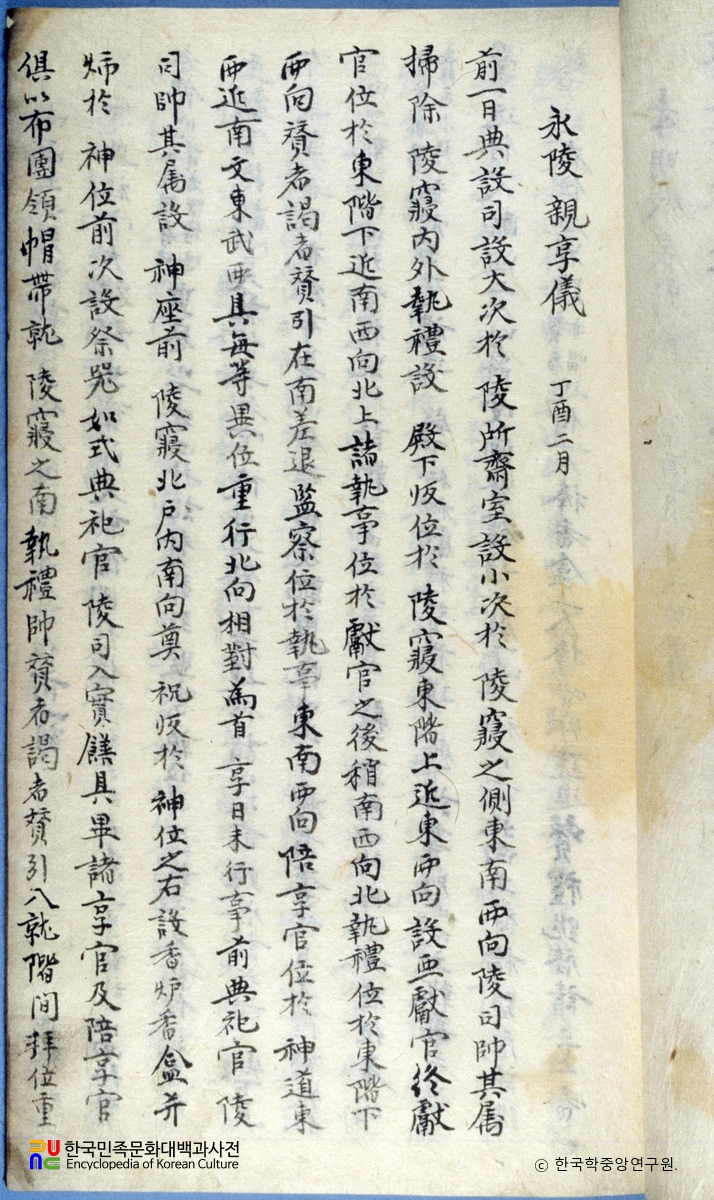 永陵 親享儀 丁酉二月
前一日典設司設大次於 陵所齋室設小次於 陵寢之側東南西向陵司帥其属
掃除 陵寢内外執禮設 殿下版位於 陵寢東階上近東西向設亞獻官終獻
官位於東階下近南西向北上諸執事位於獻官之後稍南西向北執禮位於東階下
西向贊者謁者贊引在南差退監察位於執事東南西向陪享官位於 神道東
西近南文東武西具每等異位重行北向相對為首 享日未行事前典祀官 陵
司帥其属設 神座前 陵寢北戶内南向奠 祝版於 神位之右設香炉香盒并
於 神位前次設祭器如式典祀官 陵司入實饌具畢諸享官及陪享官
俱以布團領帽帶就 陵寢之南執禮帥贊者謁者贊引入就階间拜位重
한국민족문화대백과사전
Encyclopedia of Korean Culture
ⓒ 한국학중앙연구원.